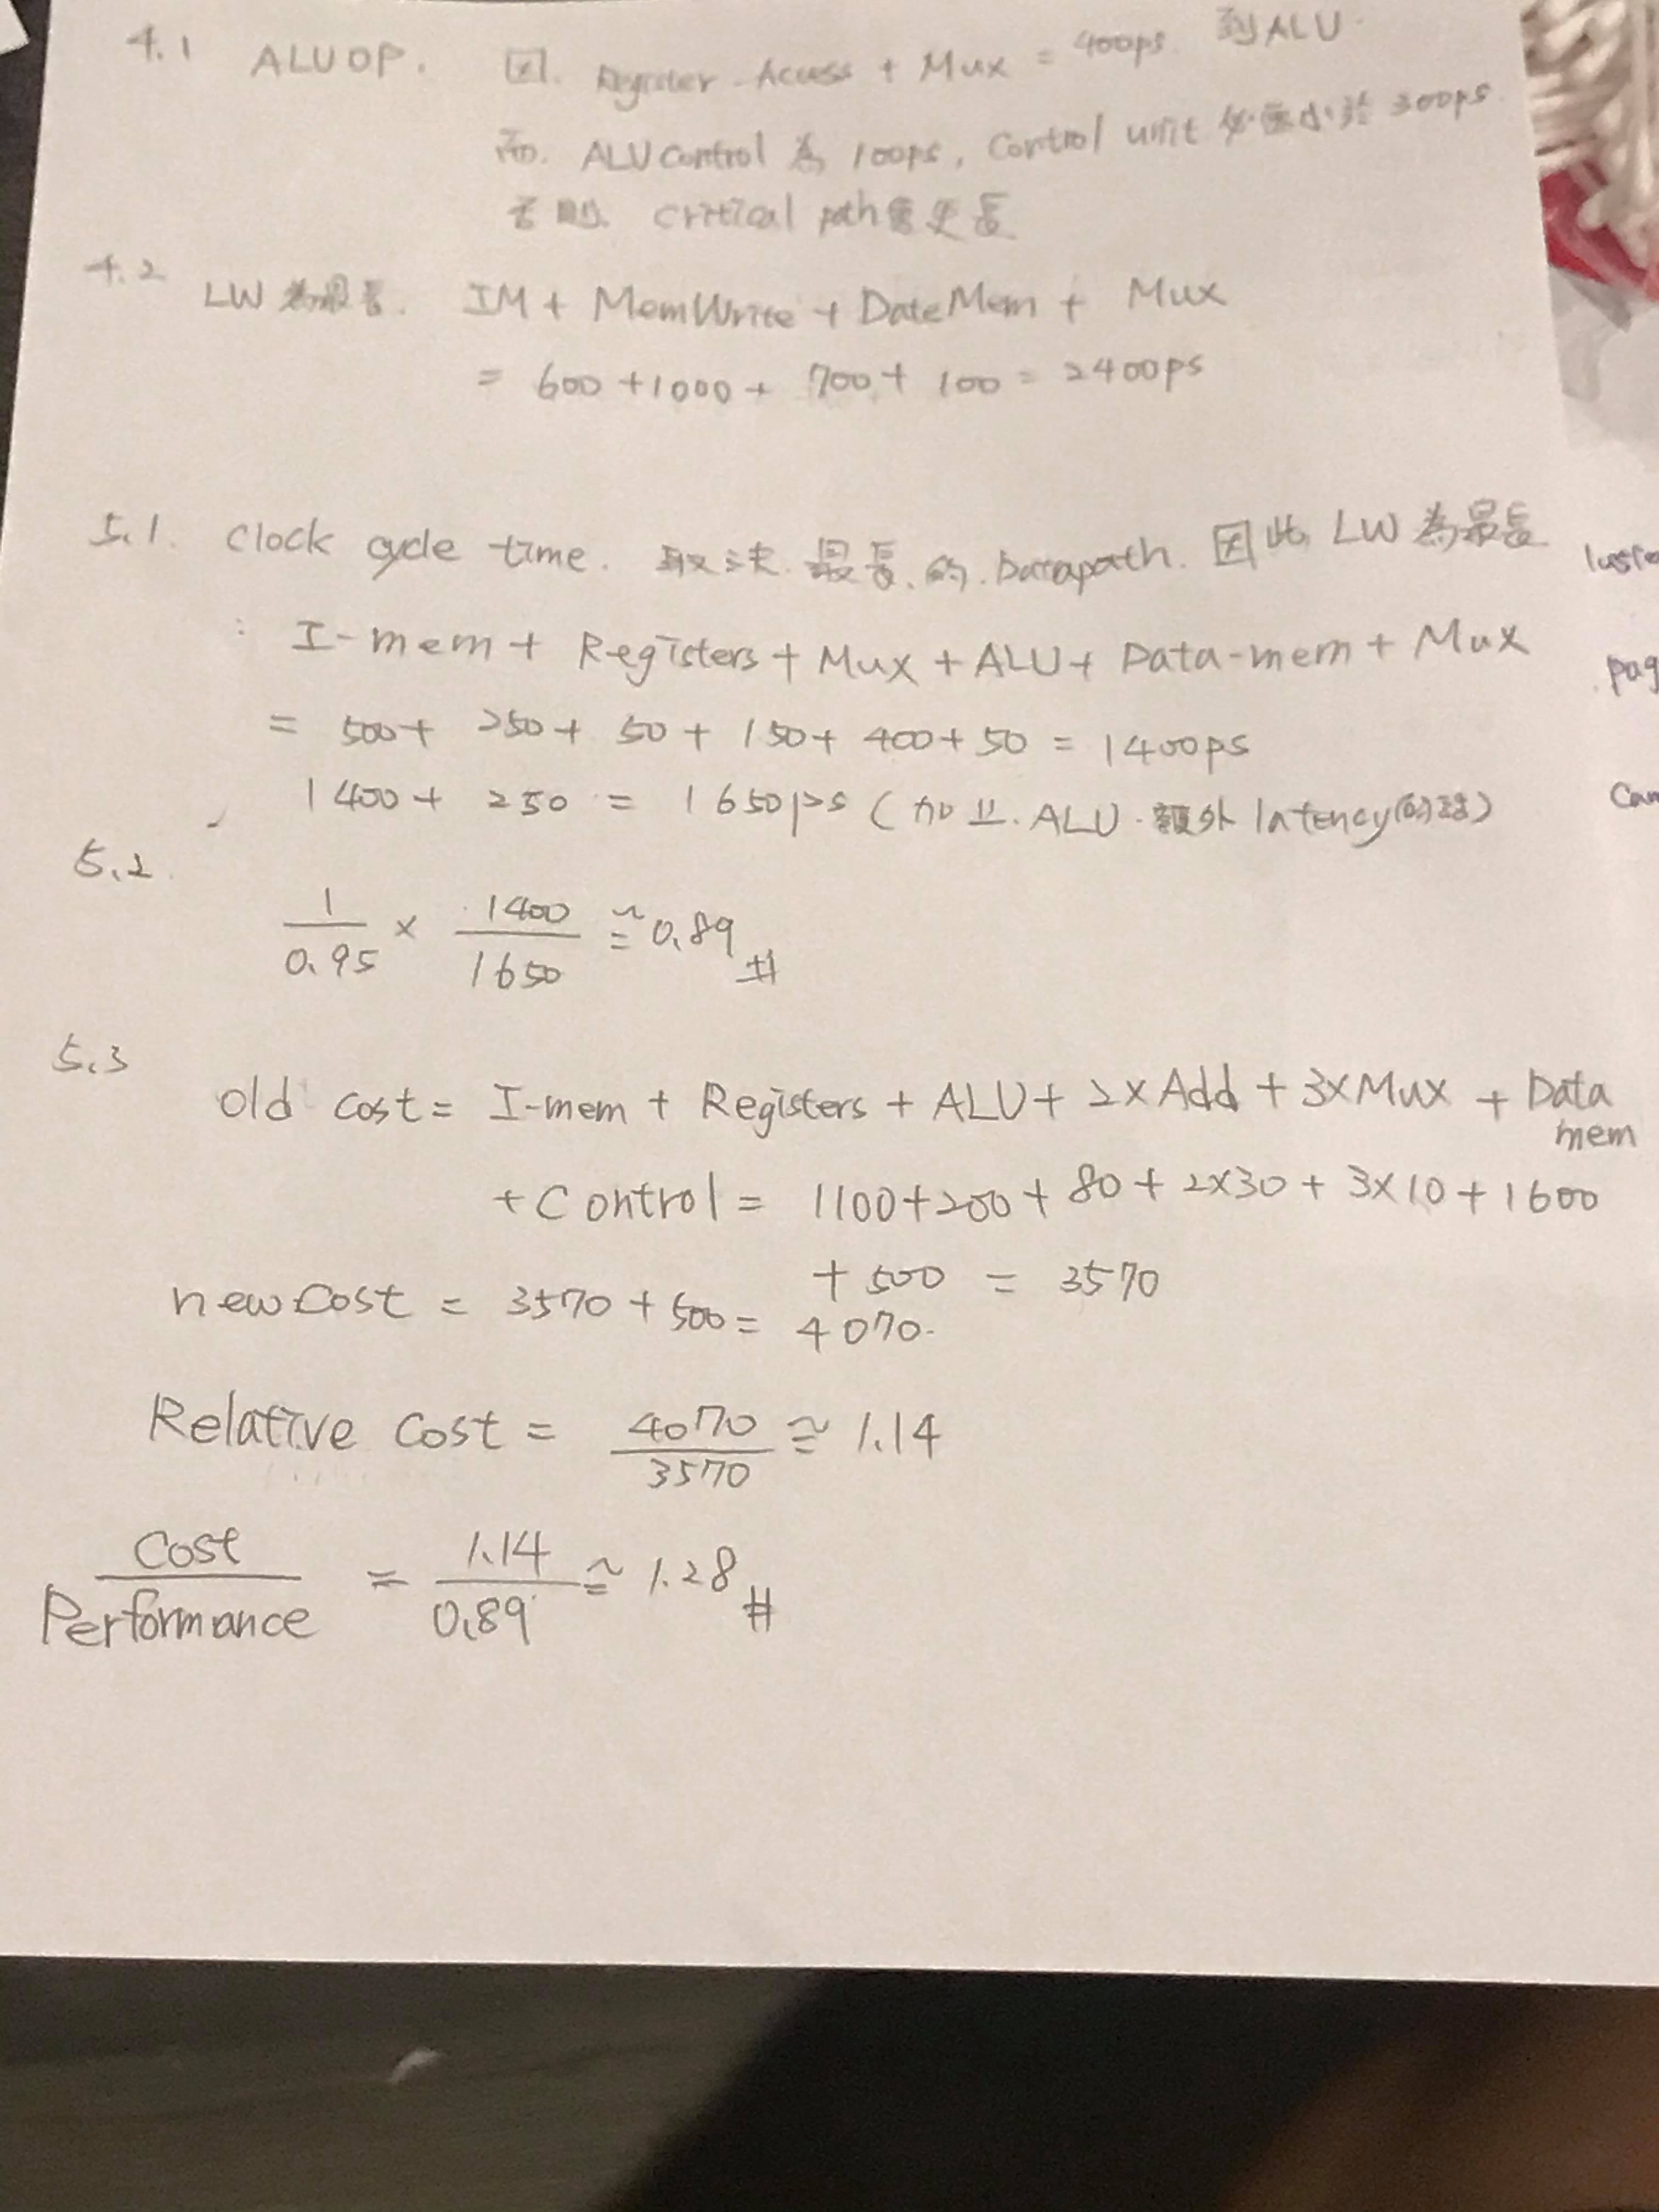 4.1 ALUOP. 因. Register Access + Mux = 400ps. 到ALU.
而. ALU control 為 100ps, Control unit 必需小於 300ps.
否則. critical path會更長
4.2 LW 為最長. IM + MemWrite + DateMem + Mux
= 600 + 1000 + 700 + 100 = 2400ps
5.1. Clock cycle time. 取決.最長.的.Datapath. 因此 LW 為最長
: I-mem + Registers + Mux + ALU + Data-mem + Mux
= 500 + 250 + 50 + 150 + 400 + 50 = 1400ps
1400 + 250 = 1650ps (加上.ALU.額外latency的話)
5.2.
1/0.95 × 1400/1650 ≅ 0.89 #
5.3
Old cost = I-mem + Registers + ALU + 2×Add + 3×Mux + Data mem
+ Control = 1100 + 200 + 80 + 2×30 + 3×10 + 1600
+ 500 = 3570
new cost = 3570 + 500 = 4070.
Relative Cost = 4070/3570 ≅ 1.14
Cost/Performance = 1.14/0.89 ≅ 1.28 #
pag
Cam